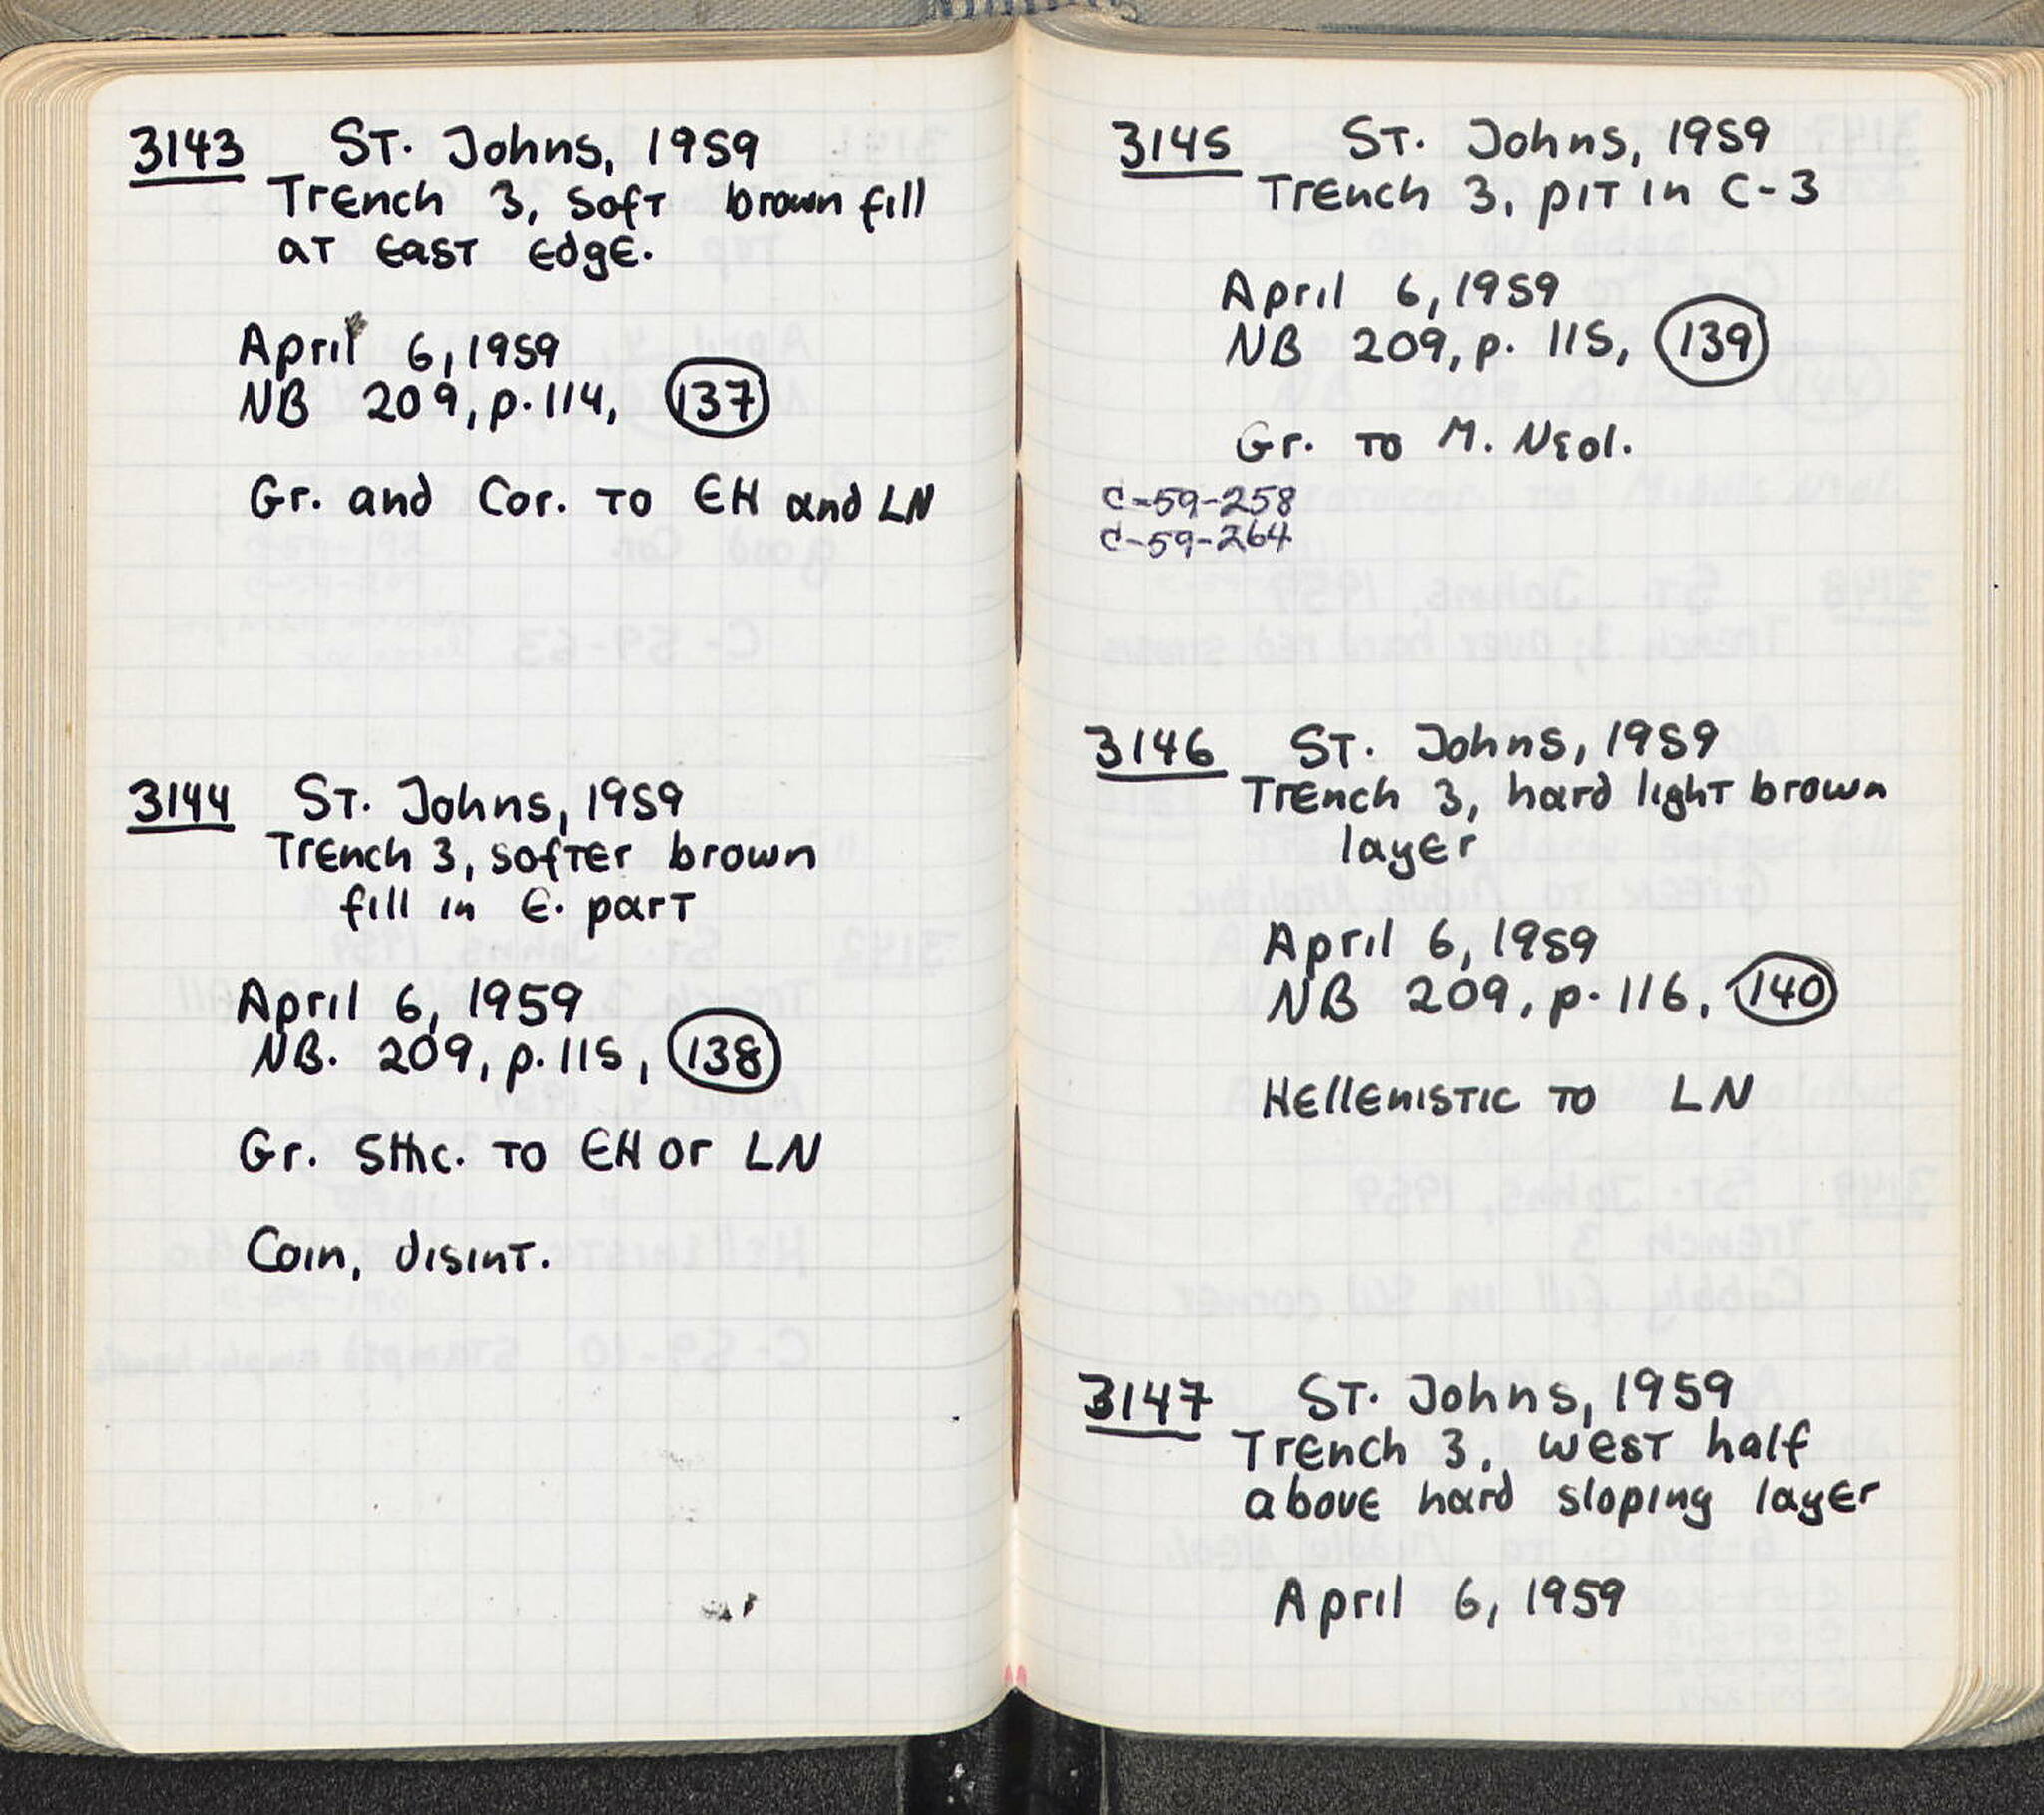 3143 ST. Johns, 1959
Trench 3, soft brown fill
at east edge.
April 6, 1959
NB 209, p. 114, 137
Gr. and Cor. to EH and LN
3144 ST. Johns, 1959
Trench 3, softer brown
fill in E. part
April 6, 1959
NB. 209, p. 115, 138
Gr. Sthc. to EH or LN
Coin, disint.
3145 ST. Johns, 1959
Trench 3, pit in C-3
April 6, 1959
NB 209, p. 115, 139
Gr. to M. Neol.
C-59-258
C-59-264
3146 ST. Johns, 1959
Trench 3, hard light brown
layer
April 6, 1959
NB 209, p. 116, 140
Hellenistic to LN
3147 ST. Johns, 1959
Trench 3, west half
above hard sloping layer
April 6, 1959